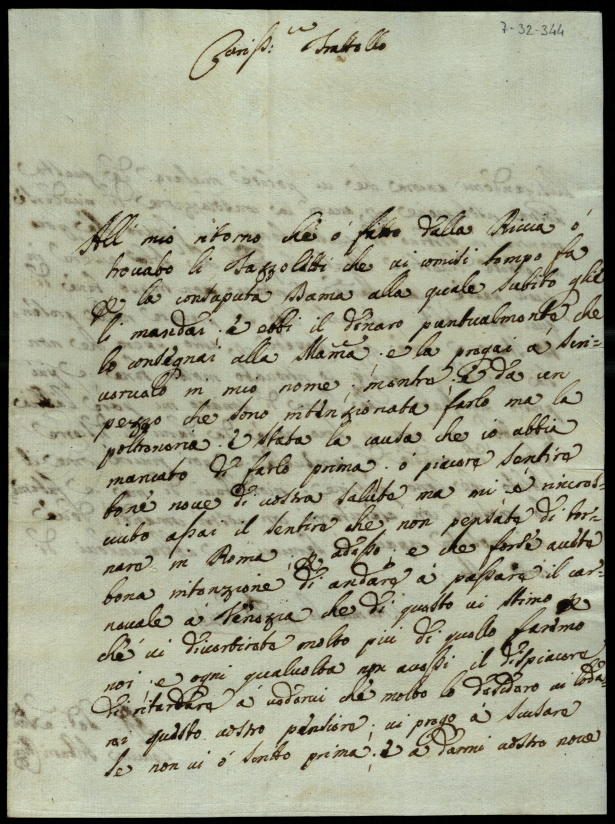 7-32-344
Cariss:mo Frattello
All mio ritorno che ò fatto dalla Riccia ò
trovato li Fazzoletti che vi comisi tempo fa
p la consaputa Dama alla quale subito glie
li mandai. è ebbi il denaro puntualmente che
lo consegnai alla Mam̃a. e la pregai à scri-
vervelo in mio nome. mentre è da un
pezzo che sono intenzionata farlo ma la
poltroneria. è stata la causa che io abbia
mancato di farlo prima. ò piacere sentire
bone nove di vostra salute ma mi è rincres-
ciuto assai il sentire che non pensate di tor-
nare in Roma p adesso. e che forse avete
bona intenzione di andare à passare il car-
novale à Venezia che di questo vi stimo p
che vi divertirete molto piu di quello faremo
noi. e ogni qualvolta non avessi il dispiacere
di ritardare à vedervi che molto lo desidero vi loda
rei questo vostro pensiere. vi prego à scusare
se non vi ò scritto prima. è à darmi vostre nove